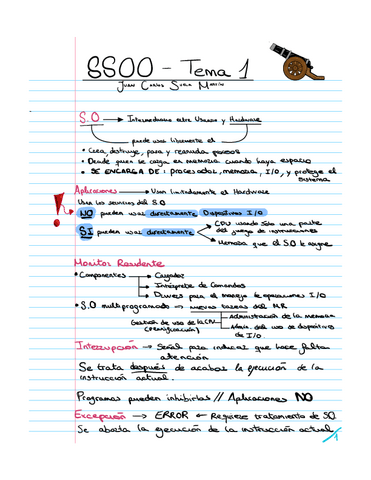 SSOO - Tema 1
Juan Carlos Surin Martin
S.O → Intermediario entre Usuario y Hardware
puede usar libremente el
• Crea, destruye, para y reanuda procesos
• Decide quien se carga en memoria cuando haya espacio
• SE ENCARGA DE: procesador, memoria, I/O, y protege el sistema
Aplicaciones → Usan limitadamente el Hardware
Usan los servicios del S.O
NO pueden usar directamente Dispositivos I/O
SI pueden usar directamente
CPU usando solo una parte
del juego de instrucciones
Memoria que el S.O le asigne
Monitor Residente
• Componentes → Cargador
→ Intérprete de Comandos
→ Drivers para el manejo de operaciones I/O
• S.O multiprogramado → nuevas tareas del MR
Administración de la memoria
Gestión de uso de la CPU
(Planificación)
Admin. del uso de dispositivos
de I/O
Interrupción → Señal para indicar que hace falta
atención
Se trata después de acabar la ejecución de la
instrucción actual.
Programas pueden inhibirlas // Aplicaciones NO
Excepción → ERROR ← Requiere tratamiento de SO.
Se aborta la ejecución de la instrucción actual
1